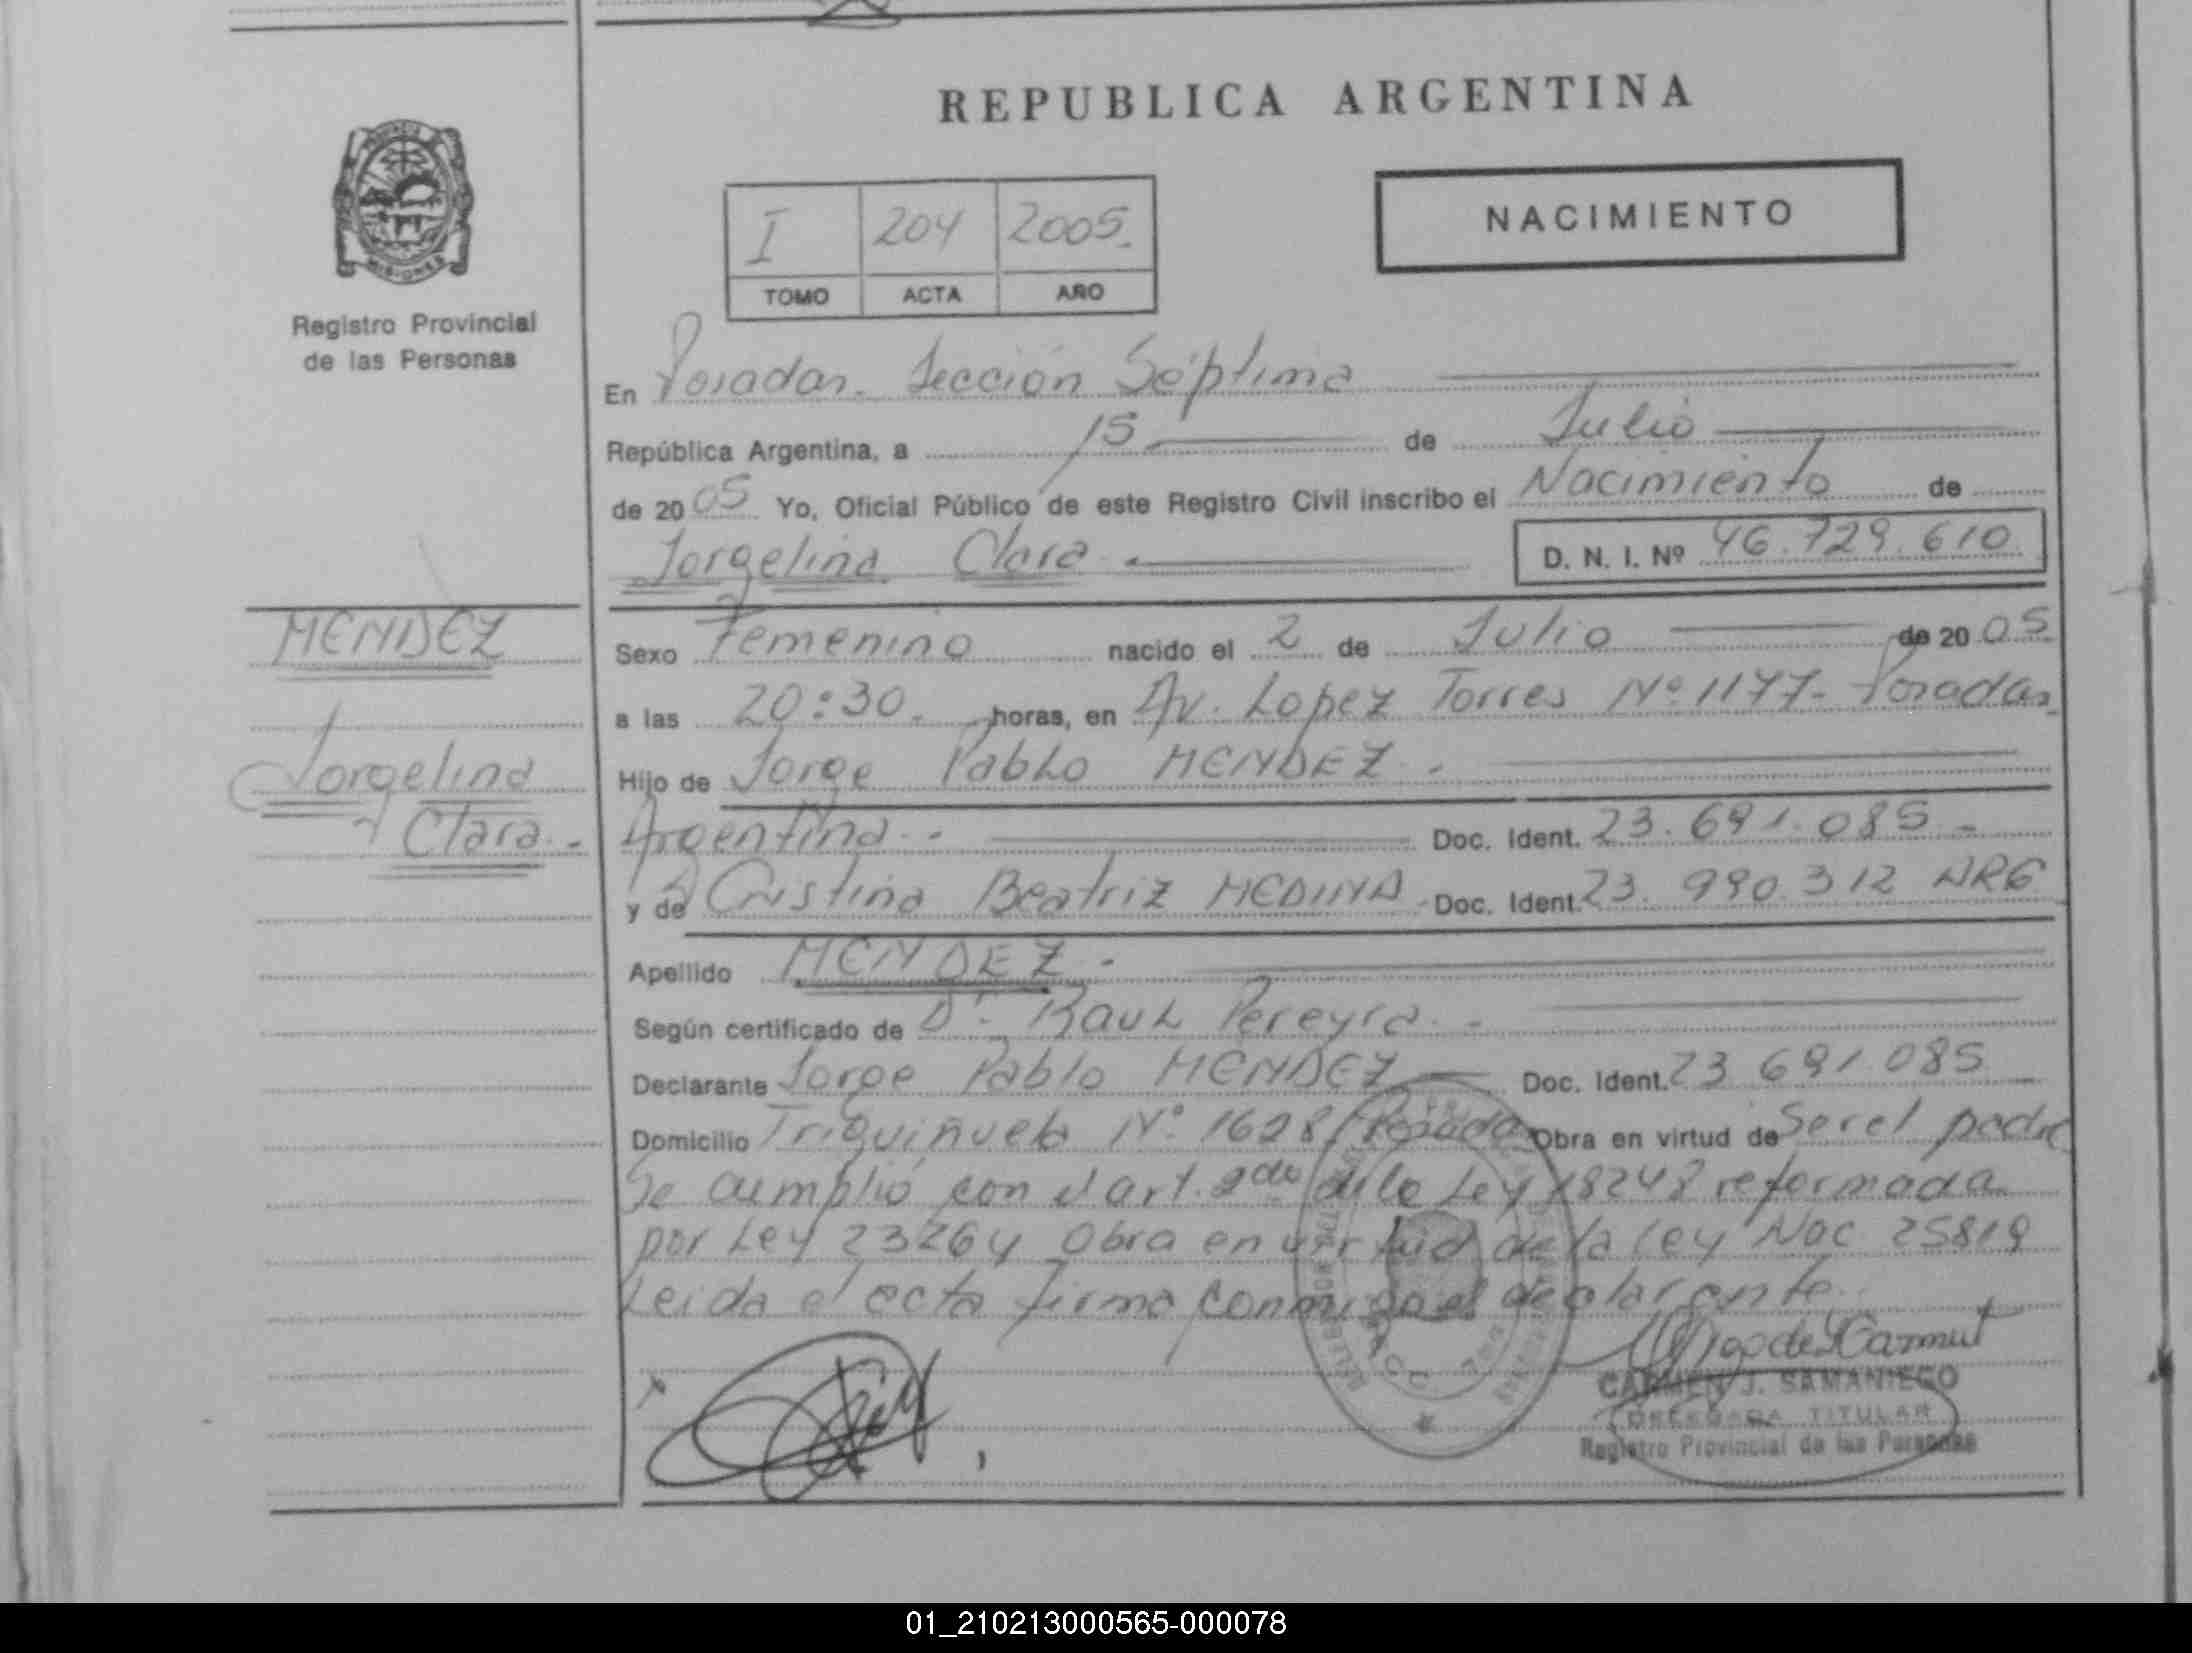 REPUBLICA ARGENTINA
MISIONES
Registro Provincial
de las Personas
I 204 2005.
TOMO ACTA AÑO
NACIMIENTO
En Posadas. Sección Séptima
República Argentina, a 15 de Julio
de 2005 Yo, Oficial Público de este Registro Civil inscribo el Nacimiento de
Jorgelina Clara.
D. N. I. Nº 46.729.610
MENDEZ
Jorgelina
Clara.-
Sexo Femenino nacido el 2 de Julio de 2005
a las 20:30. horas, en Av. Lopez Torres Nº 1177- Posadas
Hijo de Jorge Pablo MENDEZ.
Argentina.- Doc. Ident. 23.691.085-
y de Cristina Beatriz MEDINA Doc. Ident. 23.990.312 ARG
Apellido MENDEZ.-
Según certificado de Dr. Raul Pereyra.-
Declarante Jorge Pablo MENDEZ Doc. Ident. 23 691.085
Domicilio Triquiñuela Nº 1628 Posadas Obra en virtud de Ser el padre
Se cumplió con el art. 2do de la Ley 18248 reformada
por Ley 23264 Obra en virtud de la ley Nac 25819
Leida el acta firma conmigo el declarante.
CARMEN J. SAMANIEGO
DELEGADA TITULAR
Registro Provincial de las Personas
01_210213000565-000078